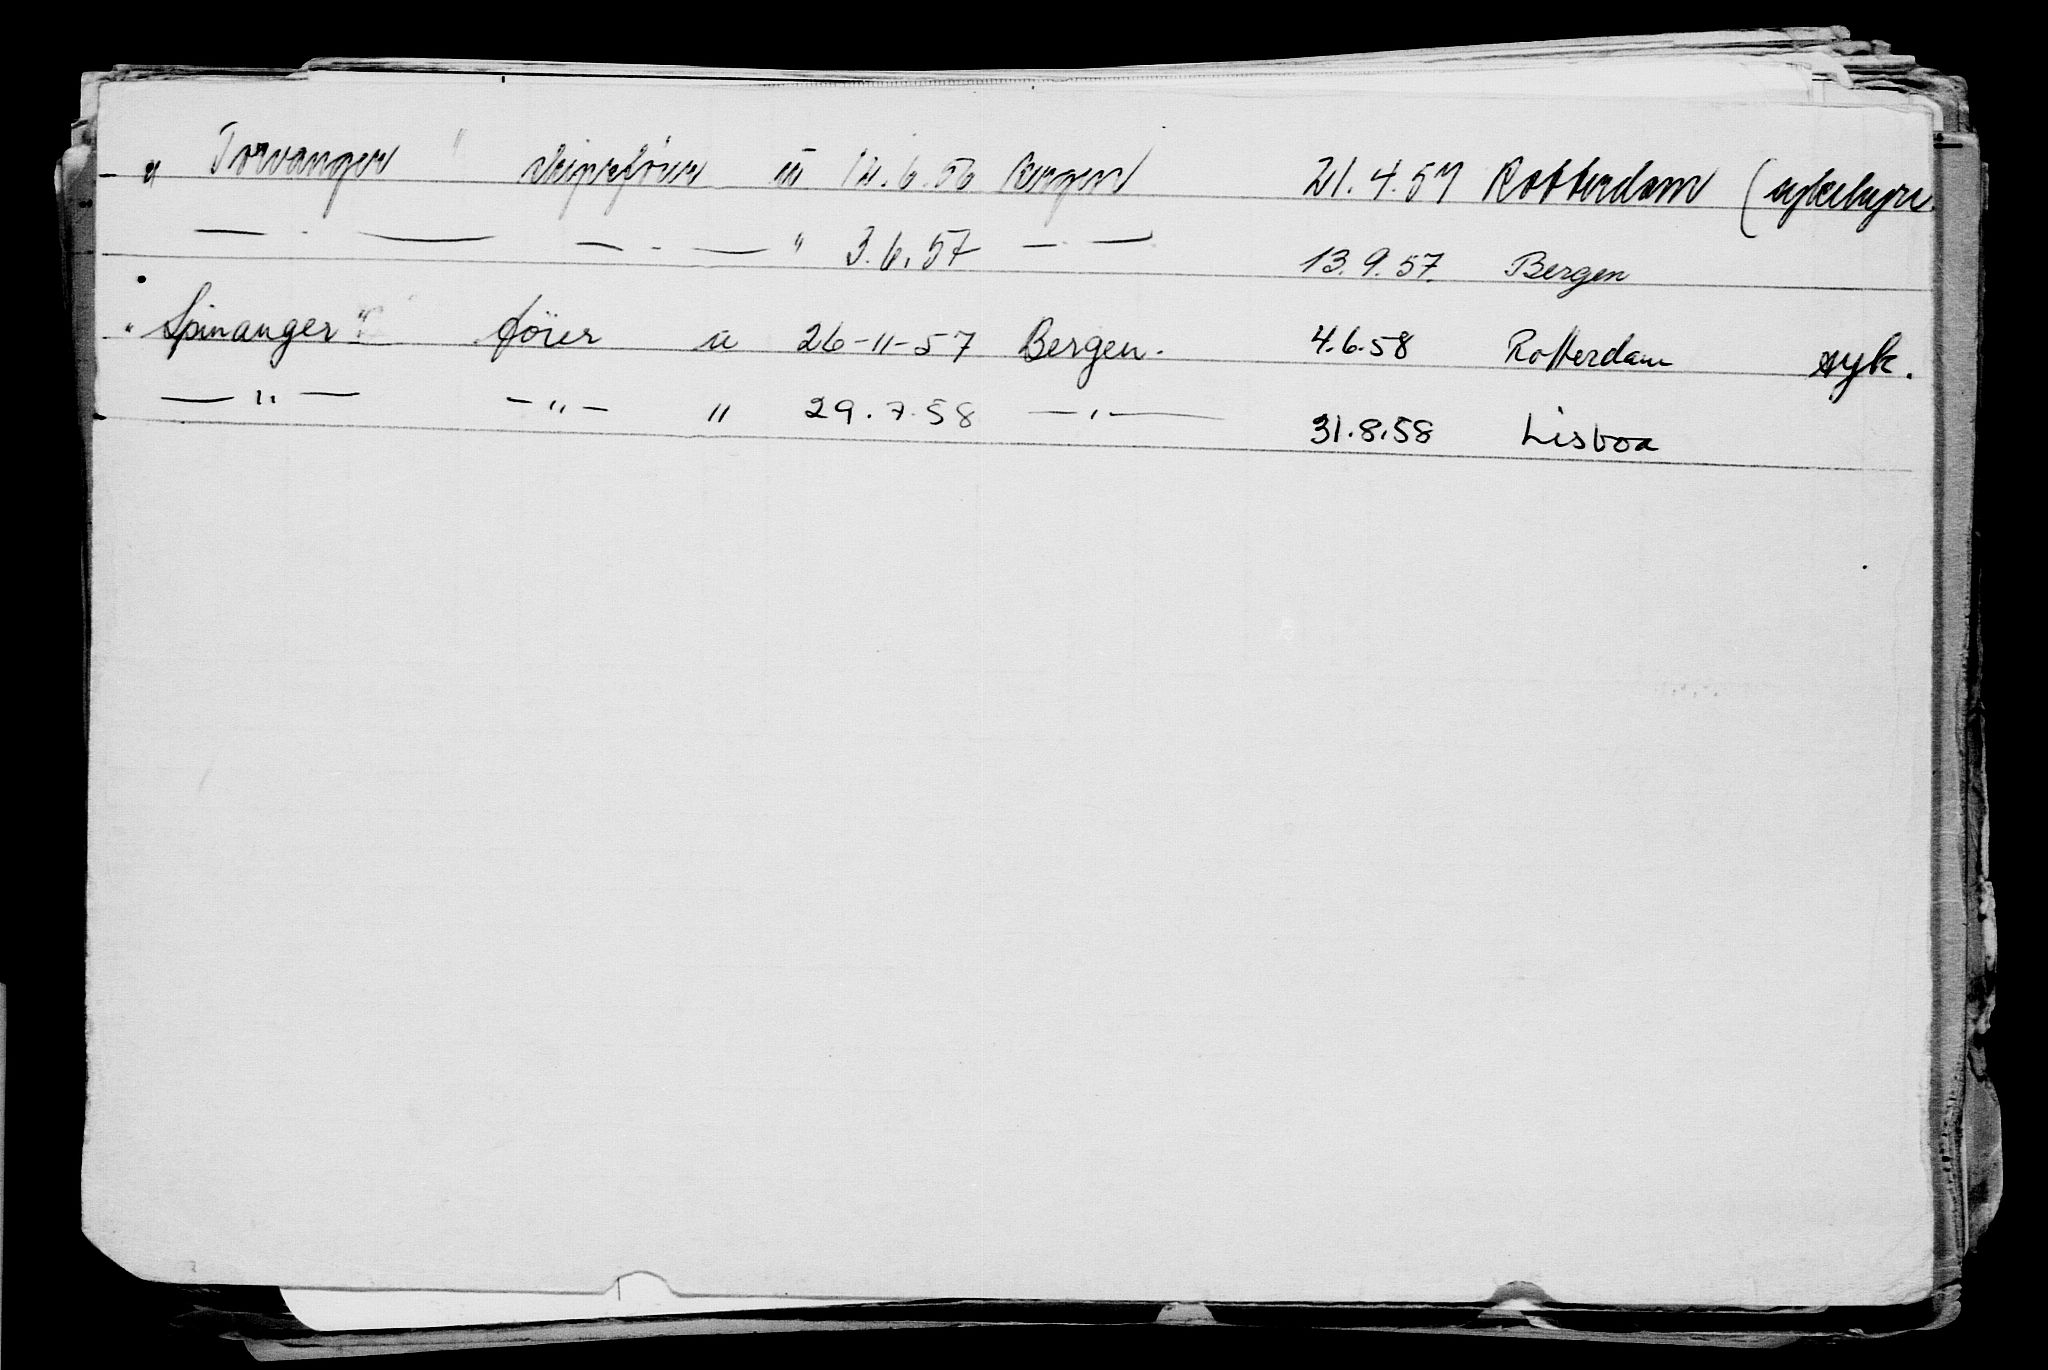 " Torvanger " skipsfører u 12.6.56 Bergen 21.4.57 Rotterdam (sykehus
— . — — . — " 3.6.57 — . — 13.9.57 Bergen
" Spinanger " fører u 26-11-57 Bergen. 4.6.58 Rotterdam syk.
— " — — " — " 29.7.58 — " — 31.8.58 Lisboa